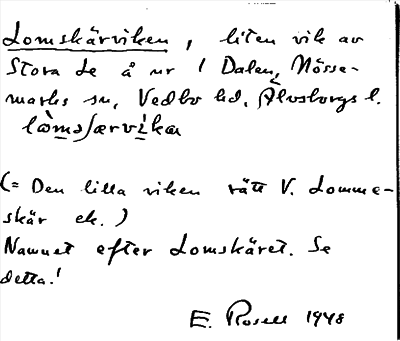 Lomskärviken, liten vik av
Stora Le å nr 1 Dalen, Nösse-
marks sn, Vedbo hd, Älvsborgs l.
lò̀msʃærvika
(= Den lilla viken rätt V. Lomme-
skär ek.)
Namnet efter Lomskäret. Se
detta!
E. Rosell 1948